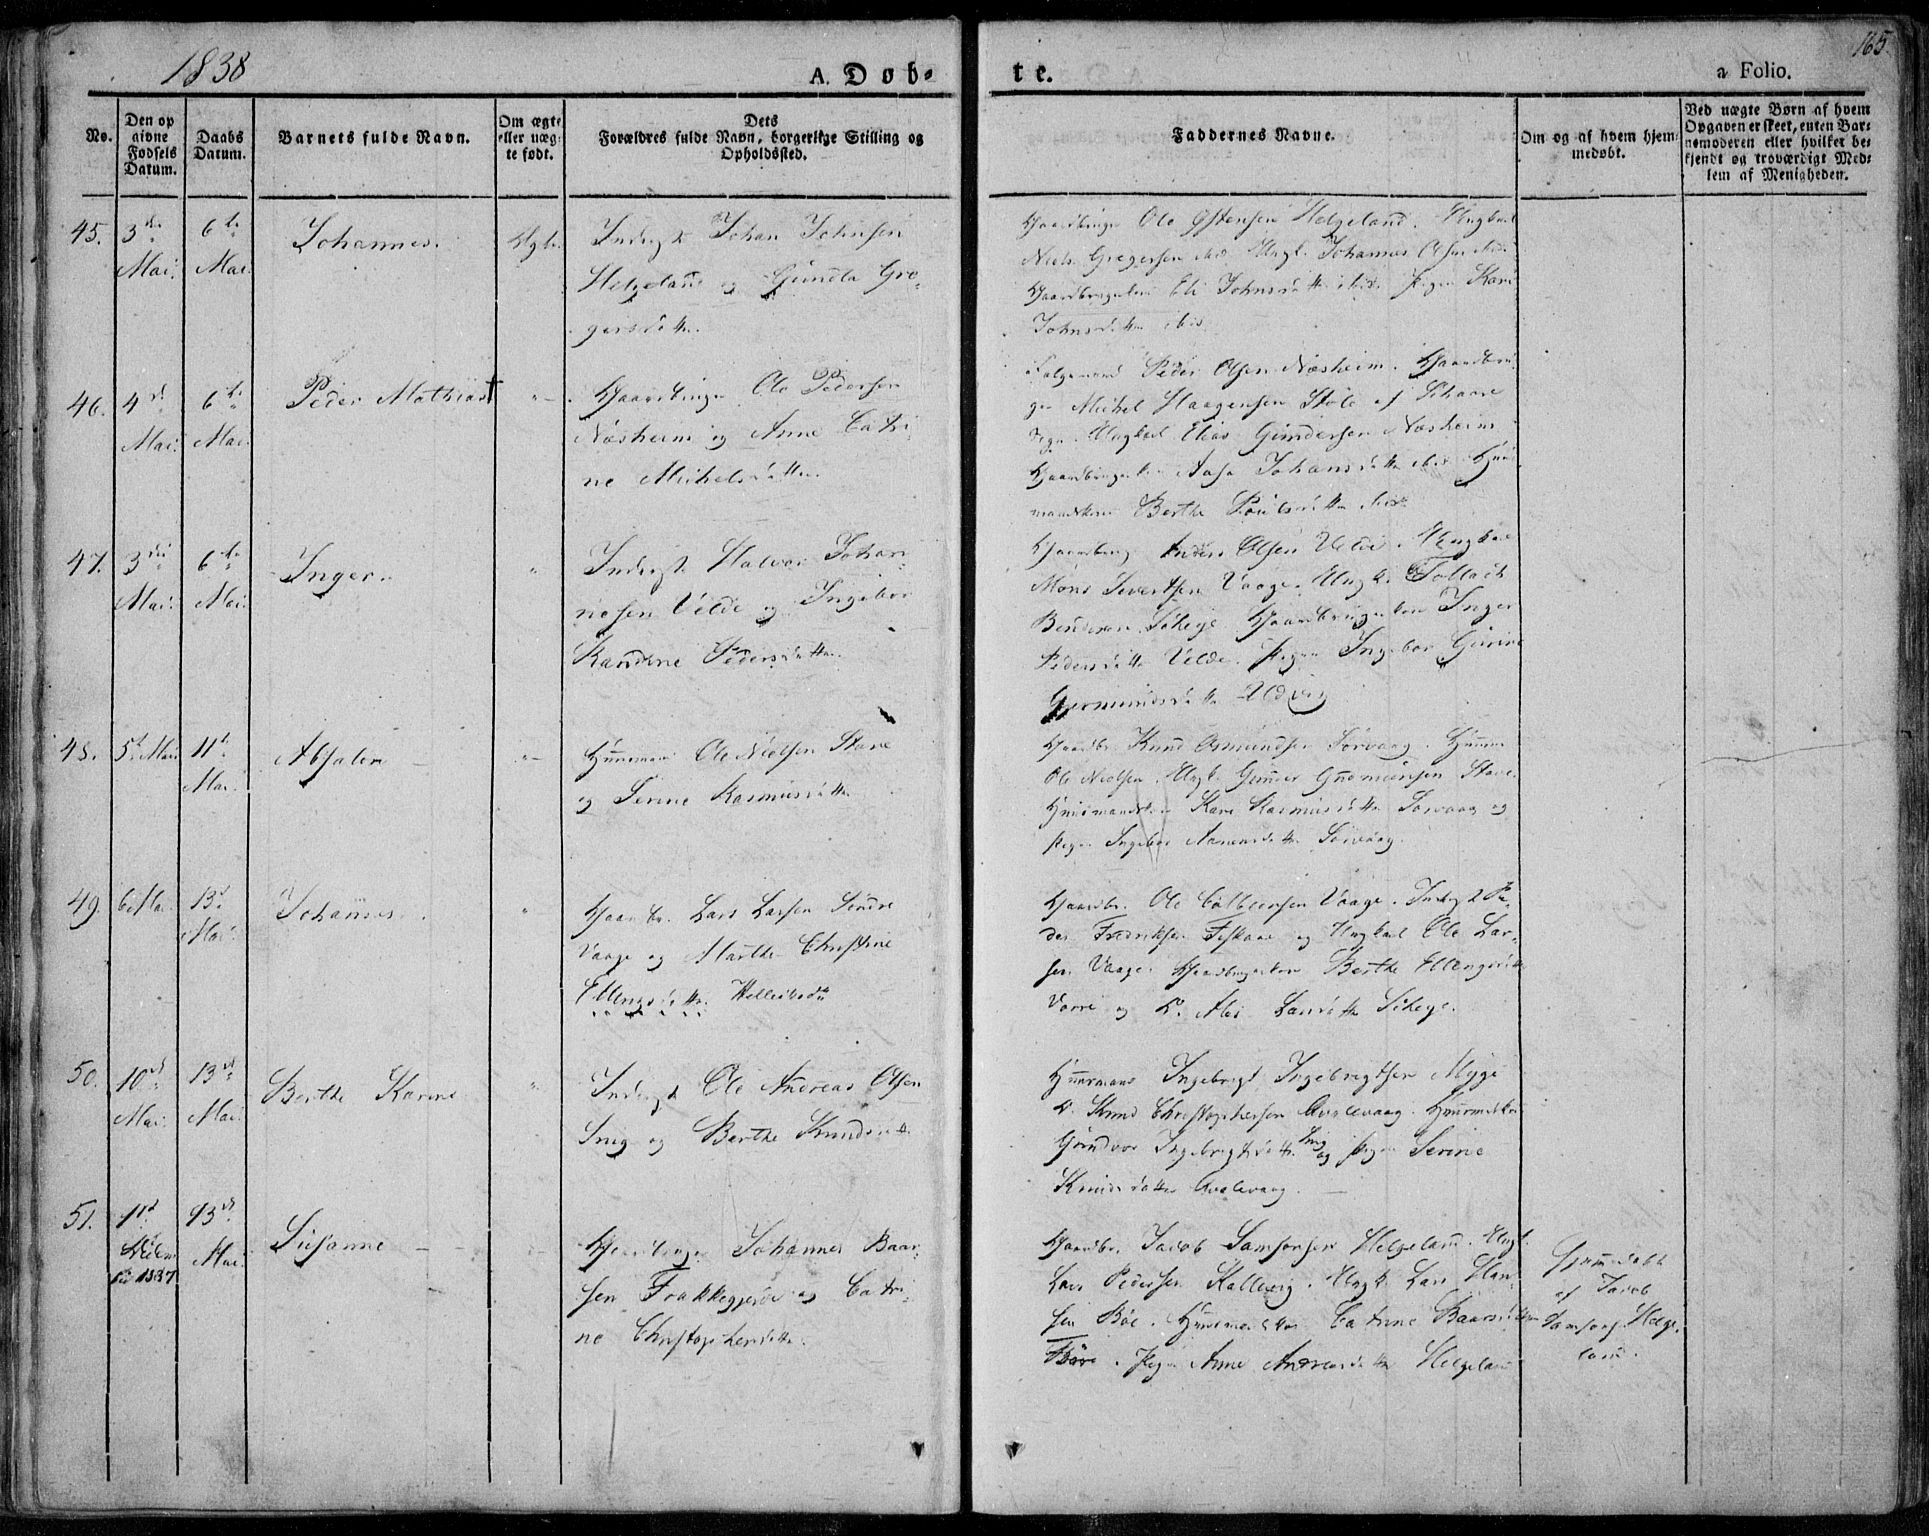 1838
A. Døb-
te.
165.
a Folio.
No.
Den op
givne
Fødsels
Datum.
Daabs
Datum.
Barnets fulde Navn.
Om ægte
eller uæg-
te født.
Dets
Forældres fulde Navn, borgerlige Stilling og
Opholdssted.
Faddernes Navne.
Om og af hvem hjem-
medøbt.
Ved uægte Børn af hvem
Opgaven er skeet, enten Bar-
nemoderen eller hvilket be-
kjendt og troværdigt Med-
lem af Menigheden.
45.
3die
Mai.
6te
Mai.
Johannes.
Ægte
Inderst Johan Johnsen
Helgeland og Gunda Gre-
gersdatter
Gaardbruger Ole Østensen Helgeland. Ungkarl
Niels Gregersen ibid. Ungk. Johannes Olsen ibid.
Gaardbrugerkone Eli Johnsdatter ibid. Pigen Kari
Johnsdatter ibid
46.
4de
Mai.
6te
Mai.
Peder Mathias †
"
Gaardbruger Ole Pedersen
Næsheim og Anne Catri-
ne Michelsdatter.
Folgemand Peder Olsen Næsheim. Gaardbru-
ger Michel Haagensen Stole af Schaare
Sogn. Ungkarl Elias Gundersen Næsheim
Gaardbrugerkone Aasa Johansdatter ibid Huus-
mandskone Berthe Poulsdatter ibid
47.
3die
Mai.
6te
Mai.
Inger
"
Inderst Halvor Johan-
nesen Velde og Ingebor
Kandine Pedersdatter.
Gaardbrug Anders Olsen Velde. Ungkarl
Mons Severtsen Vaage. Ungk. Tollach
Bendixen Scheje Gaardbrugerkone Inger
Pedersdatter Velde. Pigen Ingebor Gurine
Germundsdatter Udvig
48.
5te Mai
11te
Mai.
Absalon
"
Huusmand Ole Nielsen Stave
og Serine Rasmusdatter
Gaardbr. Knud Osmundsen Sørvaag. Huusm
Ole Nielsen. Ungk. Gunder Gudmunsen Stave.
Huusmandskone Kari Rasmusdatter Sørvaag og
Pigen Ingebor Aanensdatter Sørvaag.
49.
6te Mai
13de
Mai.
Johannes
"
Gaardbr. Lars Larsen Søndre
Vaage og Marthe Christine
Ellingsdatter
Gaardbr. Ole Vaage. Inderst Pe-
der Fredriksen og Ungkarl Ole Lar-
sen Vaage. Gaardbrugerkone Berthe Ellingsdatter
Vorre og Do. Larsdatter Scheje.
50.
10de
Mai.
13de
Mai.
Berthe Karine
"
Inderst Ole Andreas Olsen
Snig og Berthe Knudsdatter
Huusmand Ingebrigt Ingebrigtsen Myge
Do. Knud Christophersen Avalevaag. Huusmdskone
Gundvor Ingebrigtsdatter Snig og Pigen Serine
Knudsdatter Avalevaag.
51.
11te
1837
13de
Mai.
Susanne
"
Gaardbruger Johannes Baar-
sen Frakkegjerde og Catri-
ne Christophersdatter.
Gaardbr. Jacob Samsonsen Helgeland. Ungk.
Lars Pedersen Kallevig. Ungk. Lars Han-
sen Bøe. Huusmandskone Catrine Baarsdatter
Pigen Anne Andreasdatter Helgeland
Hjemmedøbt
af Jacob
Samsons. Helge-
land.